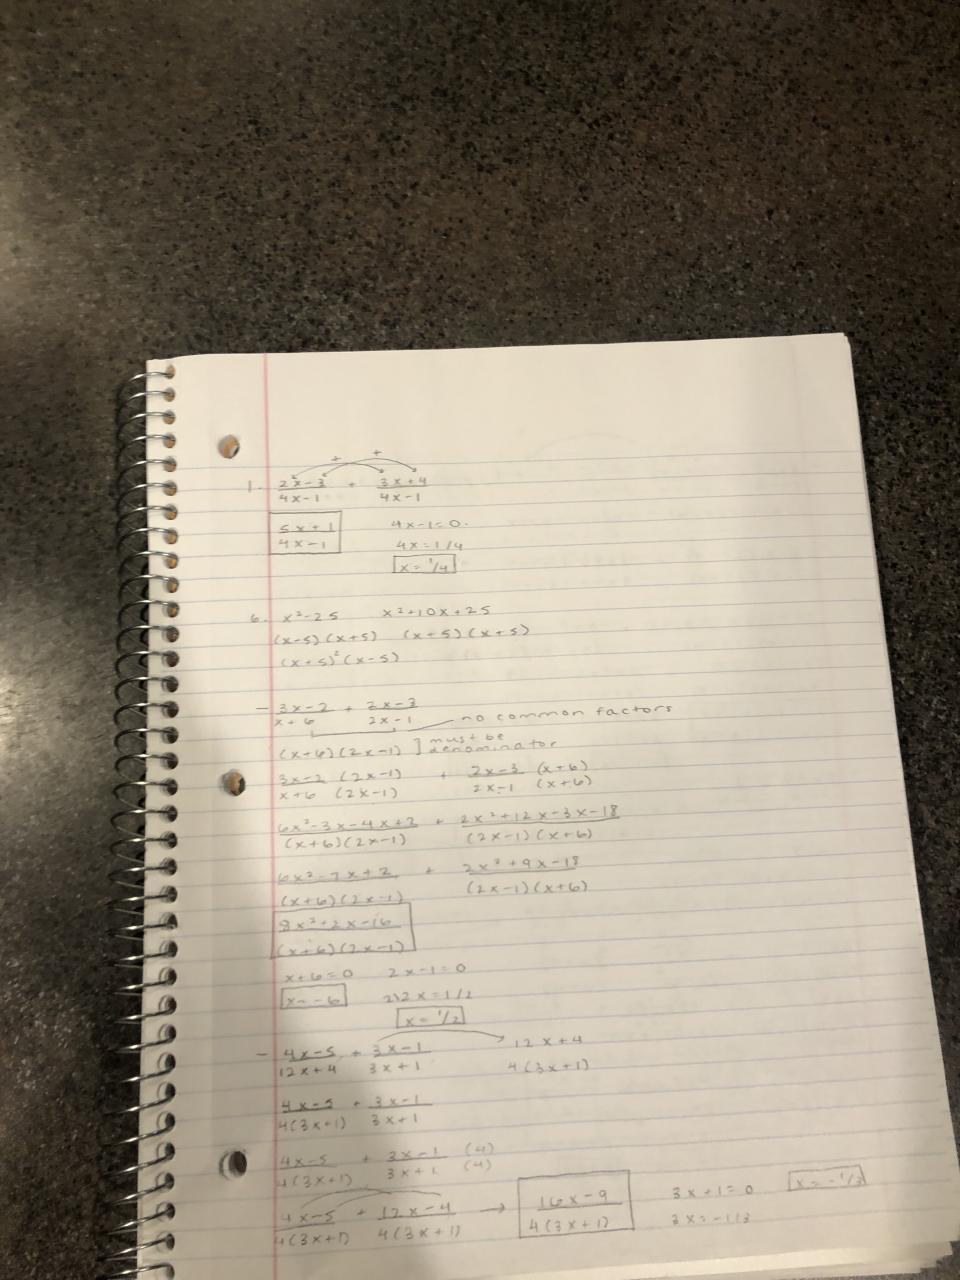 + +
1. 2x-3/4x-1 + 3x+4/4x-1
5x+1/4x-1 4x-1=0.
4x=1/4
x=1/4
6. x²-25 x²+10x+25
(x-5)(x+5) (x+5)(x+5)
(x+5)²(x-5)
- 3x-2/x+6 + 2x-3/2x-1 no common factors
(x+6)(2x-1) ] must be denominator
3x-2/x+6 (2x-1)/(2x-1) + 2x-3/2x-1 (x+6)/(x+6)
6x²-3x-4x+2/(x+6)(2x-1) + 2x²+12x-3x-18/(2x-1)(x+6)
6x²-7x+2/(x+6)(2x-1) + 2x²+9x-18/(2x-1)(x+6)
8x²+2x-16/(x+6)(2x-1)
x+6=0 2x-1=0
x=-6 2\2x=1/2
x=1/2
- 4x-5/12x+4 + 3x-1/3x+1 12x+4
4(3x+1)
4x-5/4(3x+1) + 3x-1/3x+1
4x-5/4(3x+1) + 3x-1/3x+1 (4)/(4)
4x-5/4(3x+1) + 12x-4/4(3x+1) → 16x-9/4(3x+1) 3x+1=0 x=-1/3
3x=-1/3